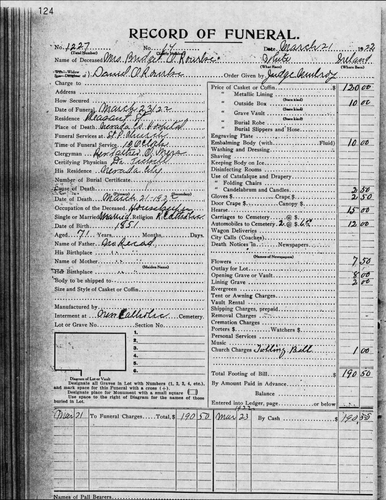 124
RECORD OF FUNERAL.
No. 1227 Date March 21 1922
(Total Number) (Yearly Number)
Name of Deceased Mrs. Bridget O. Rourke White Ireland
(What Race) (Where Born)
Daniel O. Rourke Order Given by Judge
Charge to
Address
How Secured
Date of Funeral March 23/22
Residence Pleasant St
Place of Death Nevada Co. Hospital
Funeral Services at
Time of Funeral Service 10 O'Clock
Clergyman Rev Patrick O.
Certifying Physician Dr.
His Residence Nevada City
Number of Burial Certificate
Cause of Death
Date of Death March 21-1922
Occupation of the Deceased Housekeeper
Single or Married Religion R. Catholic
Date of Birth 1851
Aged 71 Years, Months, Days.
Name of Father
His Birthplace
Name of Mother
(Maiden Name)
Her Birthplace
Body to be shipped to
Size and Style of Casket or Coffin
Manufactured by
Interment at Catholic Cemetery.
Lot or Grave No. Section No.
1.
2.
3.
4.
5.
6.
Diagram of Lot or Vault
Designate all Graves in Lot with Numbers (1, 2, 3, 4, etc.), and mark space for this Funeral with a cross (+).
Designate place for Monument with a small square □
Use space to the right of Diagram for the names of those buried in Lot.
Price of Casket or Coffin $ 120 00
" Metallic Lining
(State kind)
" Outside Box 10 00
(State kind)
" Grave Vault
(State kind)
" Burial Robe
(State kind)
" Burial Slippers and Hose
Engraving Plate
Embalming Body (with Fluid) 10 00
Washing and Dressing
Shaving
Keeping Body on Ice
Disinfecting Rooms
Use of Catafalque and Drapery
" Folding Chairs
" Candelabrum and Candles 2 50
Gloves $ 2 50
Door Crape $
Hearse 15 00
Carriages to Cemetery @ $
Automobiles to Cemetery 2 @ $ 6 00 12 00
Wagon Deliveries
City Calls (Coaches)
Death Notices in Newspapers
Flowers 7 50
Outlay for Lot
Opening Grave or Vault 8 00
Lining Grave 2 00
Evergreen
Tent or Awning Charges
Vault Rental
Shipping Charges, prepaid
Removal Charges
Cremation Charges
Porters $ Watchers $
Personal Services
Music
Church Charges Tolling Bell 1 00
Total Footing of Bill $ 190 50
By Amount Paid in Advance
Balance
Entered into Ledger, page or below
Mar 21 To Funeral Charges Total, $ 190 50 Mar 23 By Cash $ 190 50
Names of Pall Bearers